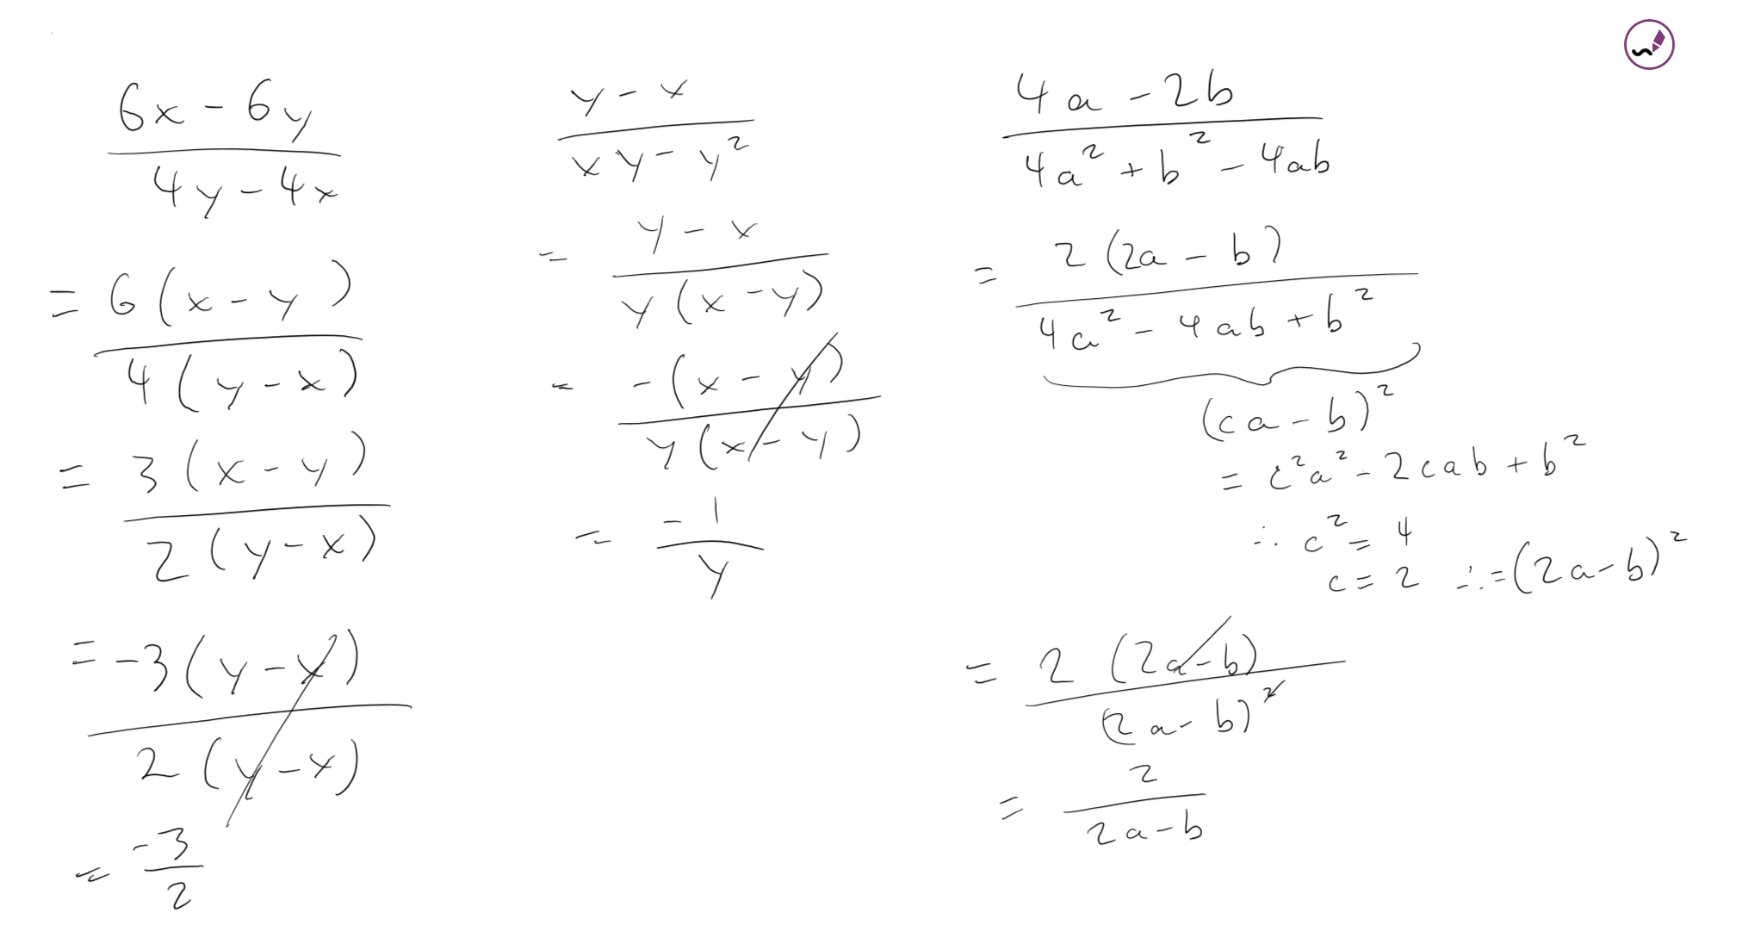 6x - 6y
4y - 4x
= 6(x - y)
4(y - x)
= 3(x - y)
2(y - x)
= -3(y - x)
2(y - x)
= -3
2
y - x
xy - y²
= y - x
y(x - y)
= -(x - y)
y(x - y)
= -1
y
4a - 2b
4a² + b² - 4ab
= 2(2a - b)
4a² - 4ab + b²
(ca - b)²
= c²a² - 2cab + b²
∴ c² = 4
c = 2 ∴ = (2a - b)²
= 2(2a - b)
(2a - b)²
= 2
2a - b